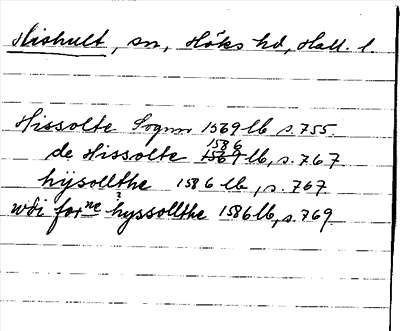 Hishult, sn, Höks hd, Hall. l.
Hissolte Sognn 1569 lb s. 755.
de Hissolte 1586 lb, s. 767.
hijsollthe 1586 lb, s. 767
wdi forne hyssollthe 1586 lb, s. 769.